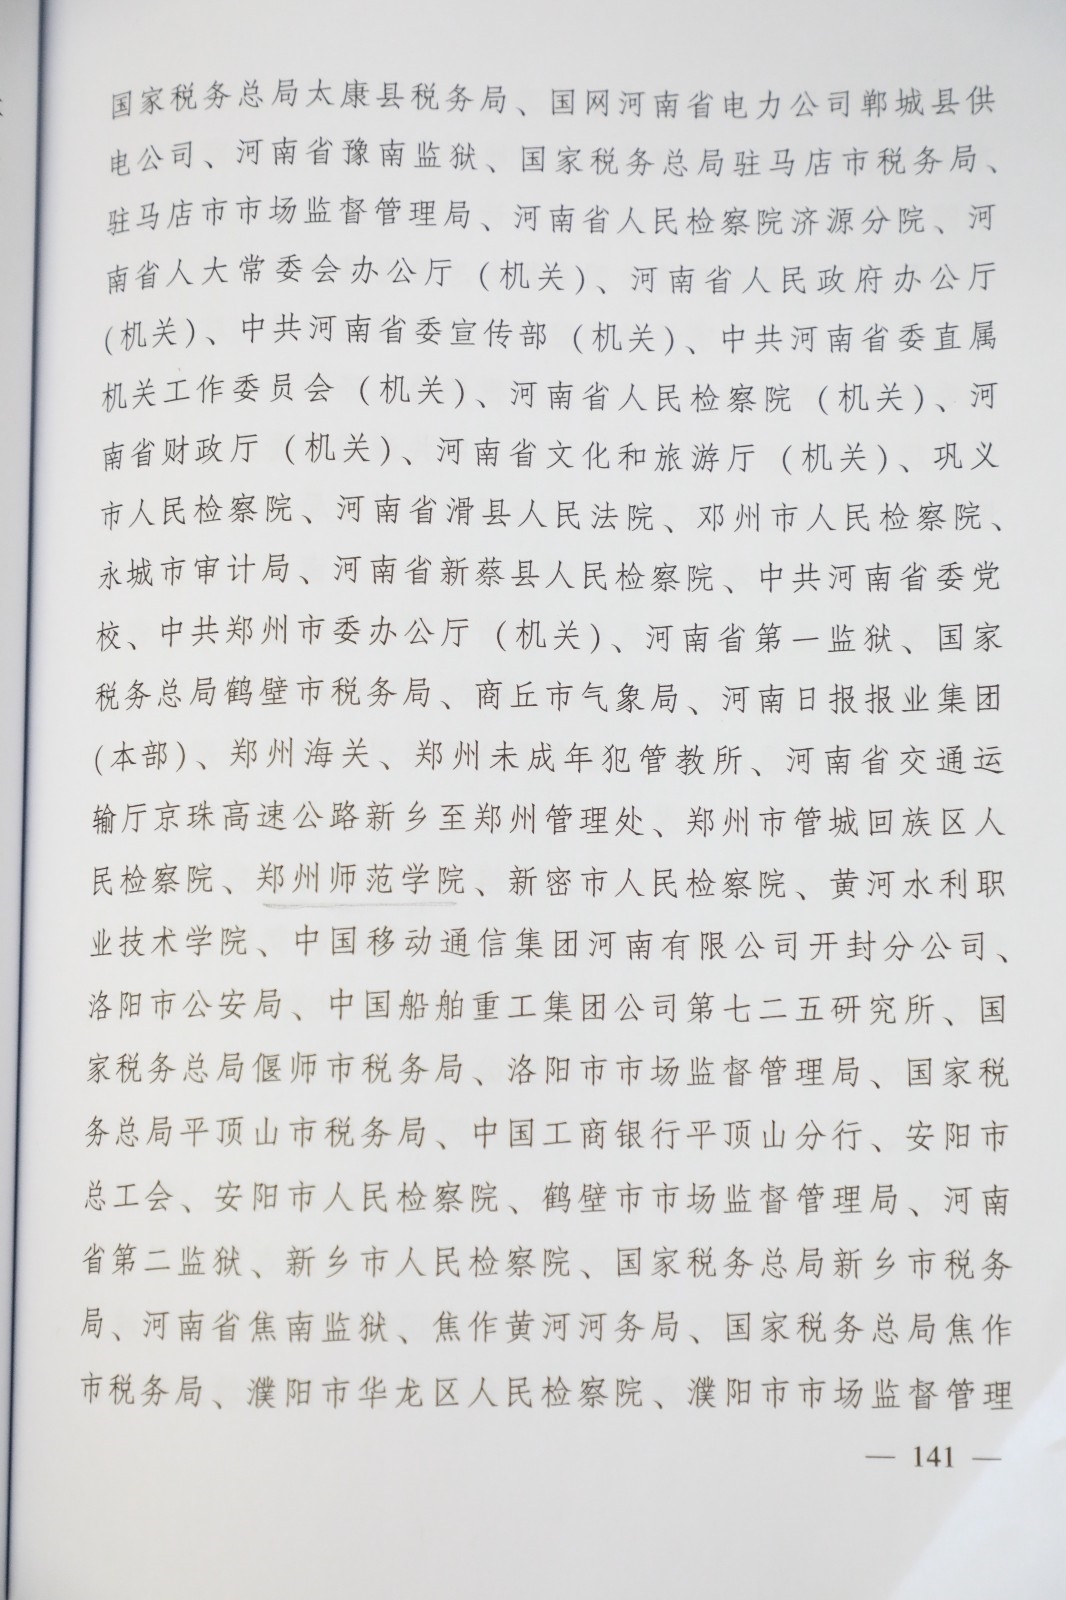 国家税务总局太康县税务局、国网河南省电力公司郸城县供
电公司、河南省豫南监狱、国家税务总局驻马店市税务局、
驻马店市市场监督管理局、河南省人民检察院济源分院、河
南省人大常委会办公厅（机关）、河南省人民政府办公厅
（机关）、中共河南省委宣传部（机关）、中共河南省委直属
机关工作委员会（机关）、河南省人民检察院（机关）、河
南省财政厅（机关）、河南省文化和旅游厅（机关）、巩义
市人民检察院、河南省滑县人民法院、邓州市人民检察院、
永城市审计局、河南省新蔡县人民检察院、中共河南省委党
校、中共郑州市委办公厅（机关）、河南省第一监狱、国家
税务总局鹤壁市税务局、商丘市气象局、河南日报报业集团
（本部）、郑州海关、郑州未成年犯管教所、河南省交通运
输厅京珠高速公路新乡至郑州管理处、郑州市管城回族区人
民检察院、郑州师范学院、新密市人民检察院、黄河水利职
业技术学院、中国移动通信集团河南有限公司开封分公司、
洛阳市公安局、中国船舶重工集团公司第七二五研究所、国
家税务总局偃师市税务局、洛阳市市场监督管理局、国家税
务总局平顶山市税务局、中国工商银行平顶山分行、安阳市
总工会、安阳市人民检察院、鹤壁市市场监督管理局、河南
省第二监狱、新乡市人民检察院、国家税务总局新乡市税务
局、河南省焦南监狱、焦作黄河河务局、国家税务总局焦作
市税务局、濮阳市华龙区人民检察院、濮阳市市场监督管理
— 141 —